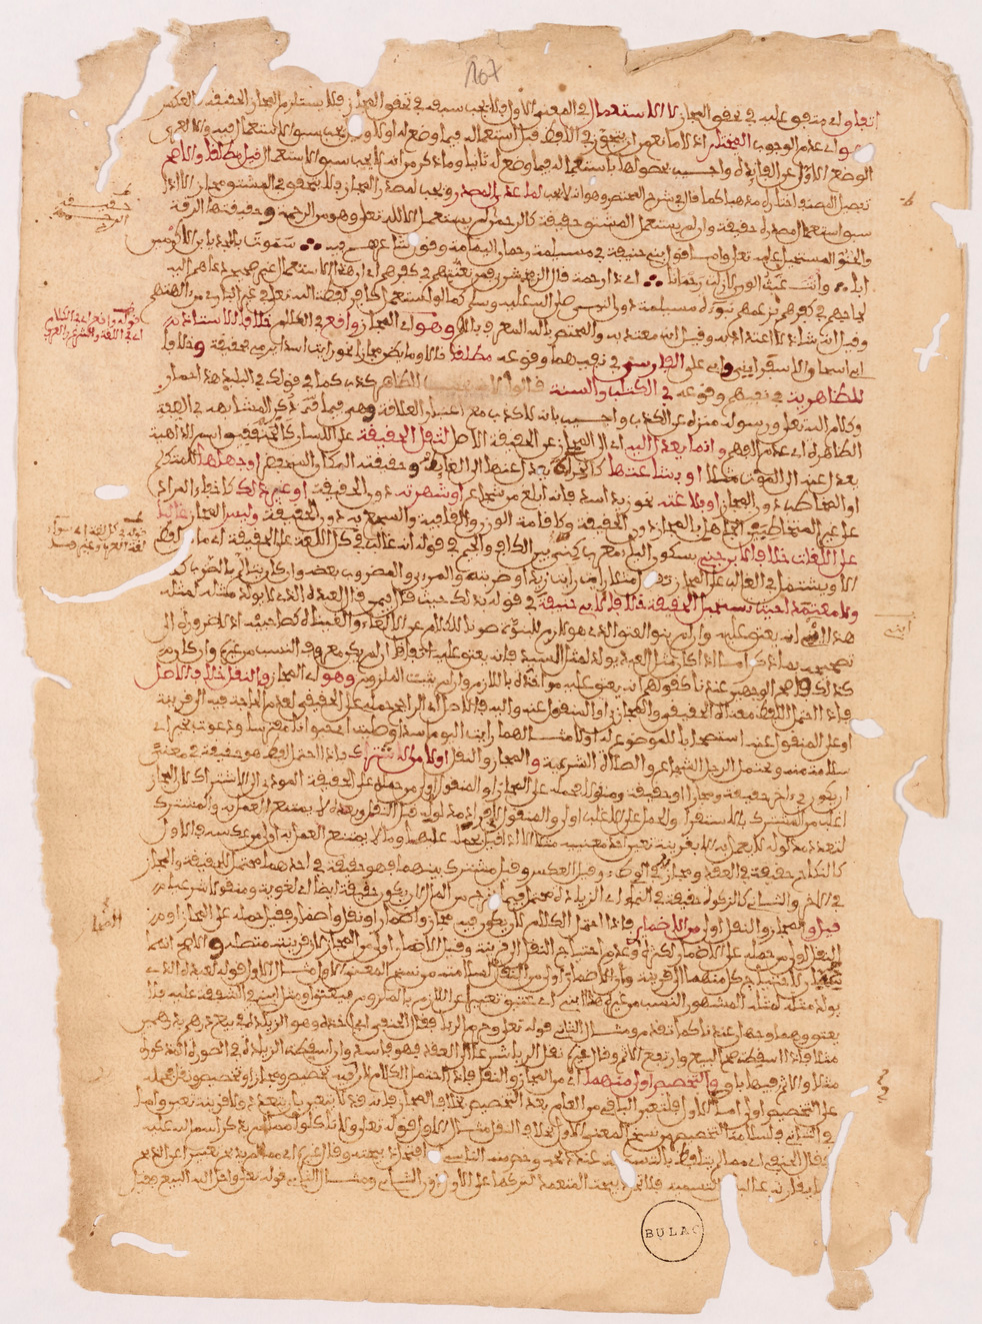 اتفاقا) أي متفق عليه في تحقق المجاز لا الاستعمال في المعنى الأول فلا يجب سبقه في تحقق المجاز فلا يستلزم المجاز الحقيقة كالعكس
وهو أي عدم الوجوب المختار إذ لا مانع من أن يتجوز في اللفظ قبل استعماله فيما وضع له أولا وقيل يجب سبق الاستعمال فيه وإلا لعرى
الوضع الأول عن الفائدة وأجيب بحصولها باستعماله فيما وضع له ثانيا وما ذكر من أنه لا يجب سبق الاستعمال قيل مطلقا والأصح
تفصيل للمصنف اختاره مذهبا كما قال في شرح المختصر وهو أنه لا يجب لما عدا المصدر ويجب لمصدر المجاز فلا يتحقق في المشتق مجاز إلا إذا
سبق استعمال مصدره حقيقة وإن لم يستعمل المشتق حقيقة كالرحمن لم يستعمل إلا لله تعلى وهو من الرحمة وحقيقتها الرقة
والحنو المستحيل عليه تعلى وأما قول بني حنيفة في مسيلمة رحمان اليمامة وقول شاعرهم فيه سموت بالمجد يا ابن الأكرمين
أبا وأنت غيث الورى لا زلت رحمانا أي ذا رحمة قال الزمخشري فمن تعنتهم في كفرهم أي أن هذا الاستعمال غير صحيح دعاهم إليه
لجاجهم في كفرهم بزعمهم نبوة مسيلمة دون النبي صلى الله عليه وسلم كما لو استعمل كافر لفظة الله تعلى في غير الباري من آلهتهم
وقيل إنه شاذ لا اعتداد به وقيل إنه معتد به والمختص بالله المعرف باللام وهو أي المجاز واقع في الكلام خلافا للأستاذ
أبي إسحاق الإسفرايني وأبي علي الفارسي في نفيهما وقوعه مطلقا قالا وما يظن مجازا نحو رأيت أسدا يرمي فحقيقة وخلافا
للظاهرية في نفيهم وقوعه في الكتاب والسنة قالوا الظاهر كذب كما في قولك في البليد هذا حمار
وكلام الله تعلى ورسوله منزه عن الكذب وأجيب بأنه لا كذب مع اعتبار العلاقة وهي فيما ذكر المشابهة في الصفة
الظاهرة أي عدم الفهم وإنما يعدل إليه أي إلى المجاز عن الحقيقة الأصل لثقل الحقيقة على اللسان كالخنفقيق اسم للداهية
يعدل عنه إلى الموت مثلا أو بشاعتها كالخراءة يعدل عنها إلى الغائط وحقيقته المكان المنخفض أو جهلها للمتكلم
أو المخاطب دون المجاز أو بلاغته نحو زيد أسد فإنه أبلغ من شجاع أو شهرته دون الحقيقة أو غير ذلك كإخفاء المراد
على غير المتخاطبين الجاهل بالمجاز دون الحقيقة وكإقامة الوزن والقافية والسجع به دون الحقيقة وليس المجاز غالبا
على اللغات خلافا لابن جني بسكون الياء معرب كني بين الكاف والجيم في قوله إنه غالب في كل اللغة على الحقيقة أي ما من لفظ
إلا ويشتمل في الغالب على المجاز تقول مثلا رأيت زيدا وضربته والمرئي والمضروب بعضه وإن كان يتألم بالضرب كله
ولا معتمدا حيث تستحيل الحقيقة خلافا لأبي حنيفة في قوله بذلك حيث قال فيمن قال لعبده الذي لا يولد مثله لمثله
هذا ابني إنه يعتق عليه وإن لم ينو العتق الذي هو لازم للبنوة صونا للكلام عن الإلغاء وألغيناه كصاحبيه إذ لا ضرورة إلى
تصحيحه بما ذكر أما إذا كان مثل العبد يولد لمثل السيد فإنه يعتق عليه اتفاقا إن لم يكن معروف النسب من غيره وإن كان
كذلك فأصح الوجهين عندنا كقولهم إنه يعتق عليه مؤاخذة باللازم وإن لم يثبت الملزوم وهو أي المجاز والنقل خلاف الأصل
فإذا احتمل اللفظ معناه الحقيقي والمجازي أو المنقول عنه وإليه فالأصل أي الراجح حمله على الحقيقي لعدم الحاجة فيه إلى قرينة
أو على المنقول عنه استصحابا للموضوع له أولا مثالهما رأيت اليوم أسدا وصليت أي حيوانا مفترسا ودعوت بخير أي
سلامة منه ويحتمل الرجل الشجاع والصلاة الشرعية والمجاز والنقل أولى من الاشتراك فإذا احتمل لفظ هو حقيقة في معنى
أن يكون في آخر حقيقة ومجازا أو حقيقة ومنقولا فحمله على المجاز أو المنقول أولى من حمله على الحقيقة المؤدي إلى الاشتراك لأن المجاز
أغلب من المشترك بالاستقراء والحمل على الأغلب أولى والمنقول لإفراد مدلوله قبل النقل وبعده لا يمتنع العمل به والمشترك
لتعدد مدلوله لا يعمل به إلا بقرينة تعين أحد معنييه مثلا إلا إذا قيل بحمله عليهما وما لا يمتنع العمل به أولى من عكسه فالأول
كالنكاح حقيقة في العقد ومجاز في الوطء وقيل العكس وقيل مشترك بينهما فهو حقيقة في أحدهما محتمل للحقيقة والمجاز
في الآخر والثاني كالزكوة حقيقة في النماء أي الزيادة محتمل فيما يخرج من المال لأن يكون حقيقة أيضا أي لغوية ومنقولا شرعيا
قيل والمجاز والنقل أولى من الإضمار فإذا احتمل الكلام لأن يكون فيه مجاز وإضمار أو نقل وإضمار فقيل حمله على المجاز أو
النقل أولى من حمله على الإضمار لكثرة وعدم احتياج النقل إلى قرينة وقيل الإضمار أولى من المجاز لأن قرينته متصلة والأصح أنهما
سيان لاحتياج كل منهما إلى قرينة وأن الإضمار أولى من النقل لسلامته من نسخ المعنى الأول مثال الأول قوله لعبده الذي
يولد مثله لمثله المشهور النسب من غيره هذا ابني أي عتيق تعبيرا عن اللازم بالملزوم فيعتق أو مثل ابني في الشفقة عليه فلا
يعتق وهما وجهان عندنا كما تقدم ومثال الثاني قوله تعلى وحرم الربا فقال الحنفي أي أخذه وهو الزيادة في بيع درهم بدرهمين
مثلا فإذا أسقطت صح البيع وارتفع الإثم وقال غيره نقل الربا شرعا إلى العقد فهو فاسد وإن أسقطت الزيادة في الصورة المذكورة
مثلا والإثم فيها باق والتخصيص أولى منهما أي من المجاز والنقل فإذا احتمل الكلام لأن فيه تخصيص ومجاز أو تخصيص ونقل فحمله
على التخصيص أولى أما الأول فلتعين الباقي من العام بعد التخصيص بخلاف المجاز فإنه قد لا يتعين بأن يتعدد ولا قرينة تعين وأما
في الثاني فلسلامة التخصيص من نسخ المعنى الأول بخلاف النقل مثال الأول قوله تعلى ولا تأكلوا مما لم يذكر اسم الله عليه
فقال الحنفي أي مما لم يتلفظ بالتسمية عند ذبحه وخص منه الناسي فتحل ذبيحته وقال غيره أي مما لم يذبح تعبيرا عن الذبح
بما يقارنه غالبا التسمية فلا تحل ذبيحة المتعمد لتركها على الأول دون الثاني ومثال الثاني قوله تعلى وأحل الله البيع فقيل
107
BULAC